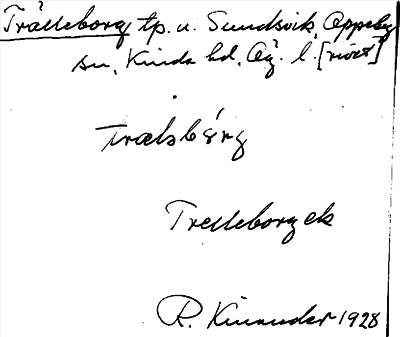 Trälleborg tp. u. Sundsvik, Oppeby
sn, Kinda hd, Ög. l. [rivet]
Trelleborgek
R. Kinander 1928